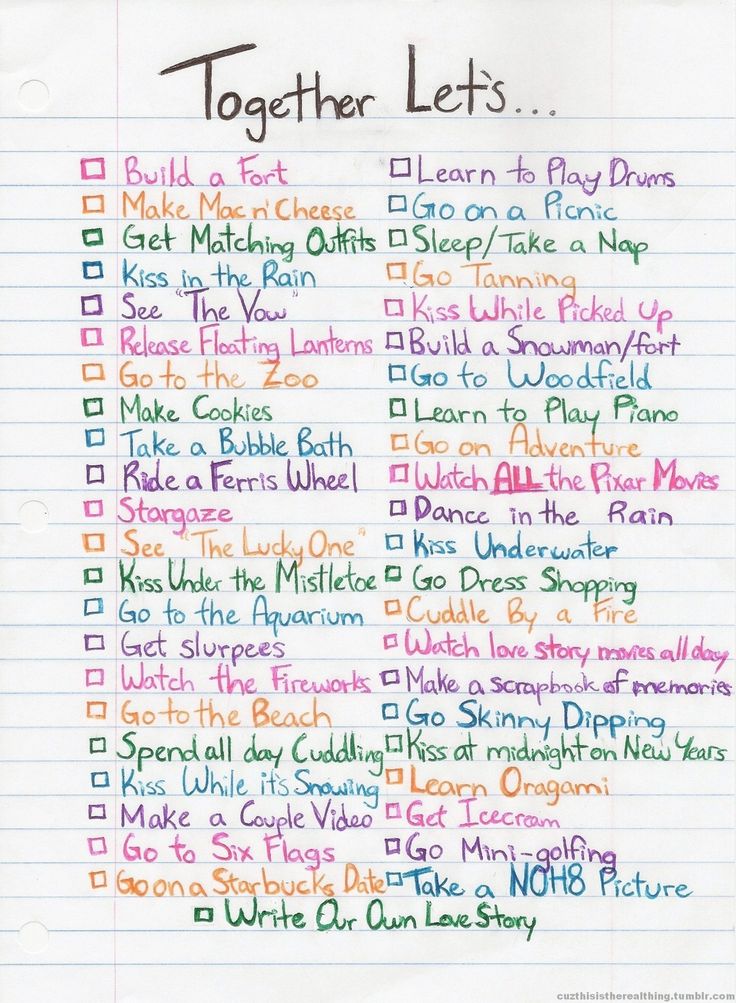 Together Let's...
Build a Fort
Make Mac n' Cheese
Get Matching Outfits
Kiss in the Rain
See "The Vow"
Release Floating Lanterns
Go to the Zoo
Make Cookies
Take a Bubble Bath
Ride a Ferris Wheel
Stargaze
See "The Lucky One"
Kiss Under the Mistletoe
Go to the Aquarium
Get slurpees
Watch the Fireworks
Go to the Beach
Spend all day Cuddling
Kiss While it's Snowing
Make a Couple Video
Go to Six Flags
Go on a Starbucks Date
Learn to Play Drums
Go on a Picnic
Sleep/Take a Nap
Go Tanning
Kiss While Picked Up
Build a Snowman/fort
Go to Woodfield
Learn to Play Piano
Go on Adventure
Watch ALL the Pixar Movies
Dance in the Rain
Kiss Underwater
Go Dress Shopping
Cuddle By a Fire
Watch love story movies all day
Make a scrapbook of memories
Go Skinny Dipping
Kiss at midnight on New Years
Learn Oragami
Get Icecream
Go Mini-golfing
Take a NOH8 Picture
Write Our Own Love Story
cuzthisistherealthing.tumblr.com